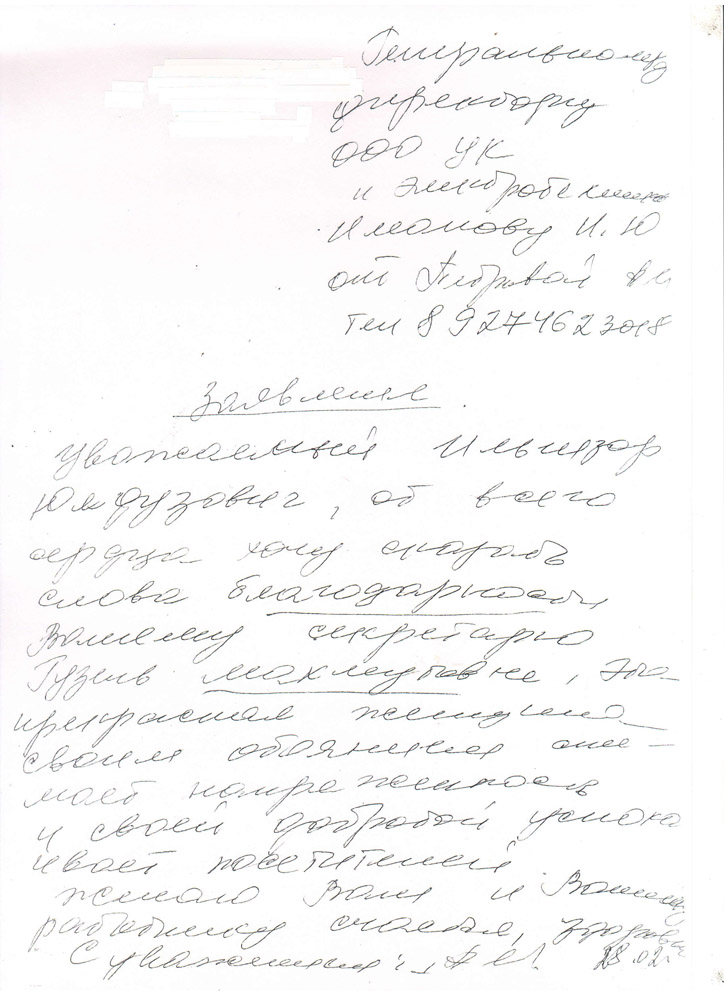 Генеральному
директору
ООО УК
Иманову И. Ю
от Петровой
тел 8 9274623018
Заявление
Уважаемый Ильназар
Юлдузович, от всего
сердца хочу сказать
слова благодарности
Вашему секретарю
Гузель Махмутовне, эта
прекрасная женщина
своим обаянием сни-
мает напряженность
и своей добротой успока
ивает посетителей
желаю Вам и Вашему
работнику счастья, здоровья
С уважением: 28.02.